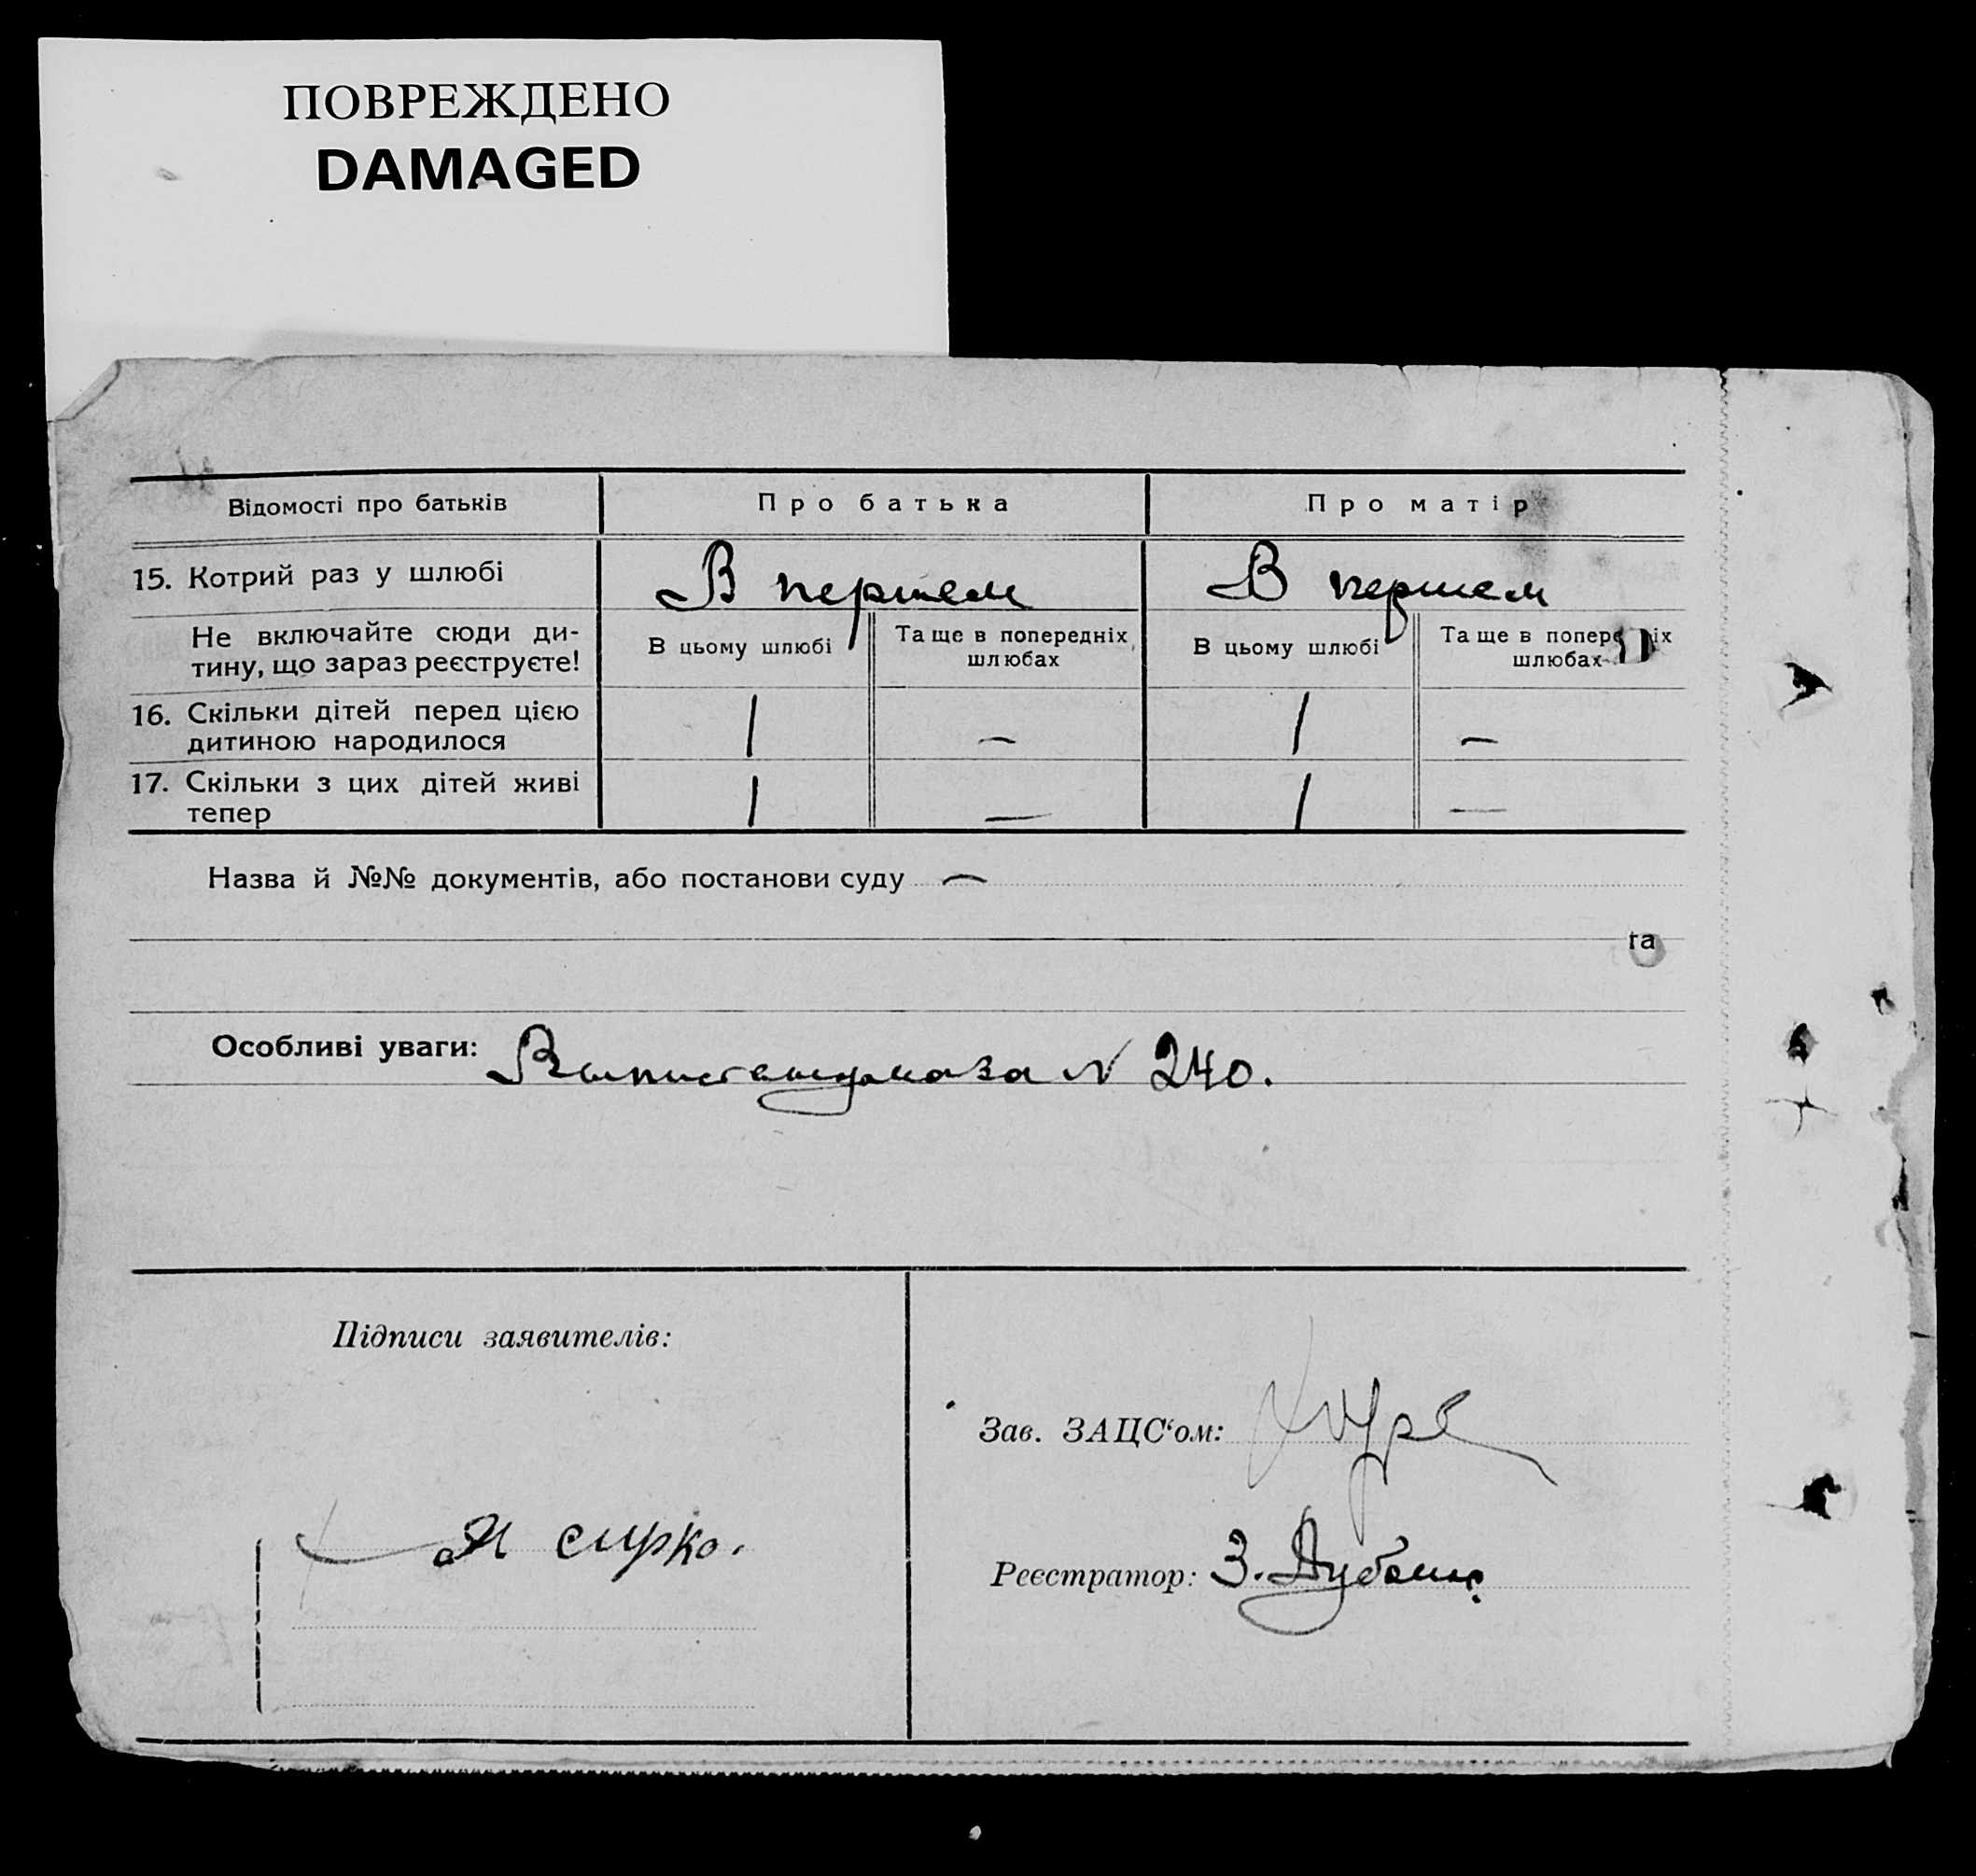 ПОВРЕЖДЕНО
DAMAGED
Відомості про батьків
Про батька
Про матір
15. Котрий раз у шлюбі
В першем
В першем
Не включайте сюди ди-
тину, що зараз реєструєте!
В цьому шлюбі
Та ще в попередніх
шлюбах
В цьому шлюбі
Та ще в попередніх
шлюбах
16. Скільки дітей перед цією
дитиною народилося
1
—
1
—
17. Скільки з цих дітей живі
тепер
1
—
1
—
Назва й №№ документів, або постанови суду —
та
Особливі уваги:
N 240.
Підписи заявителів:
Зав. ЗАЦС‘ом:
сирко.
Реєстратор: З.